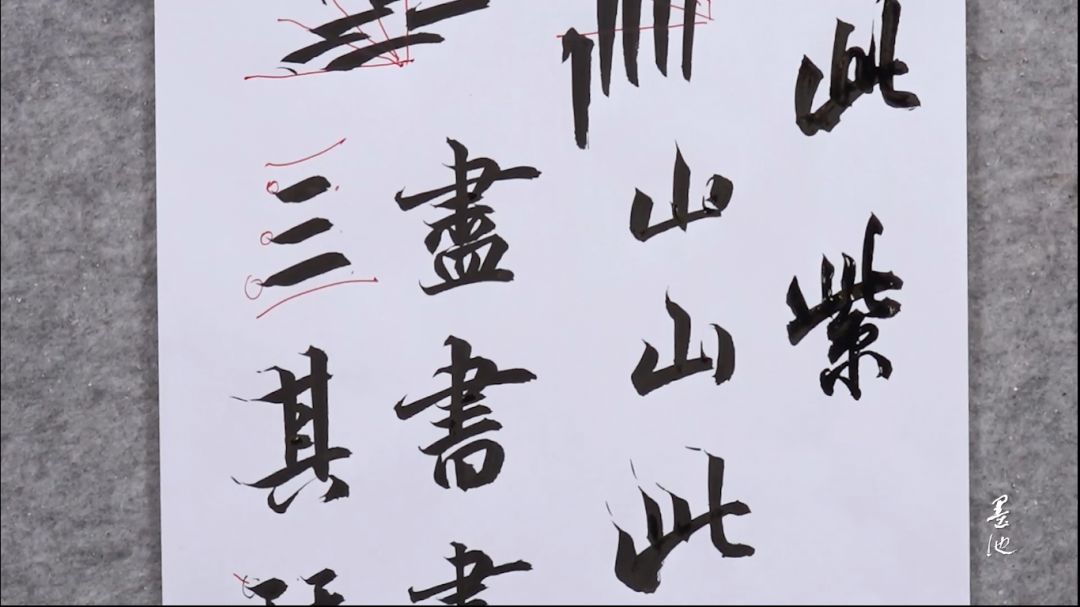 此
紫
山
山
此
盡
書
書
三
其
墨池